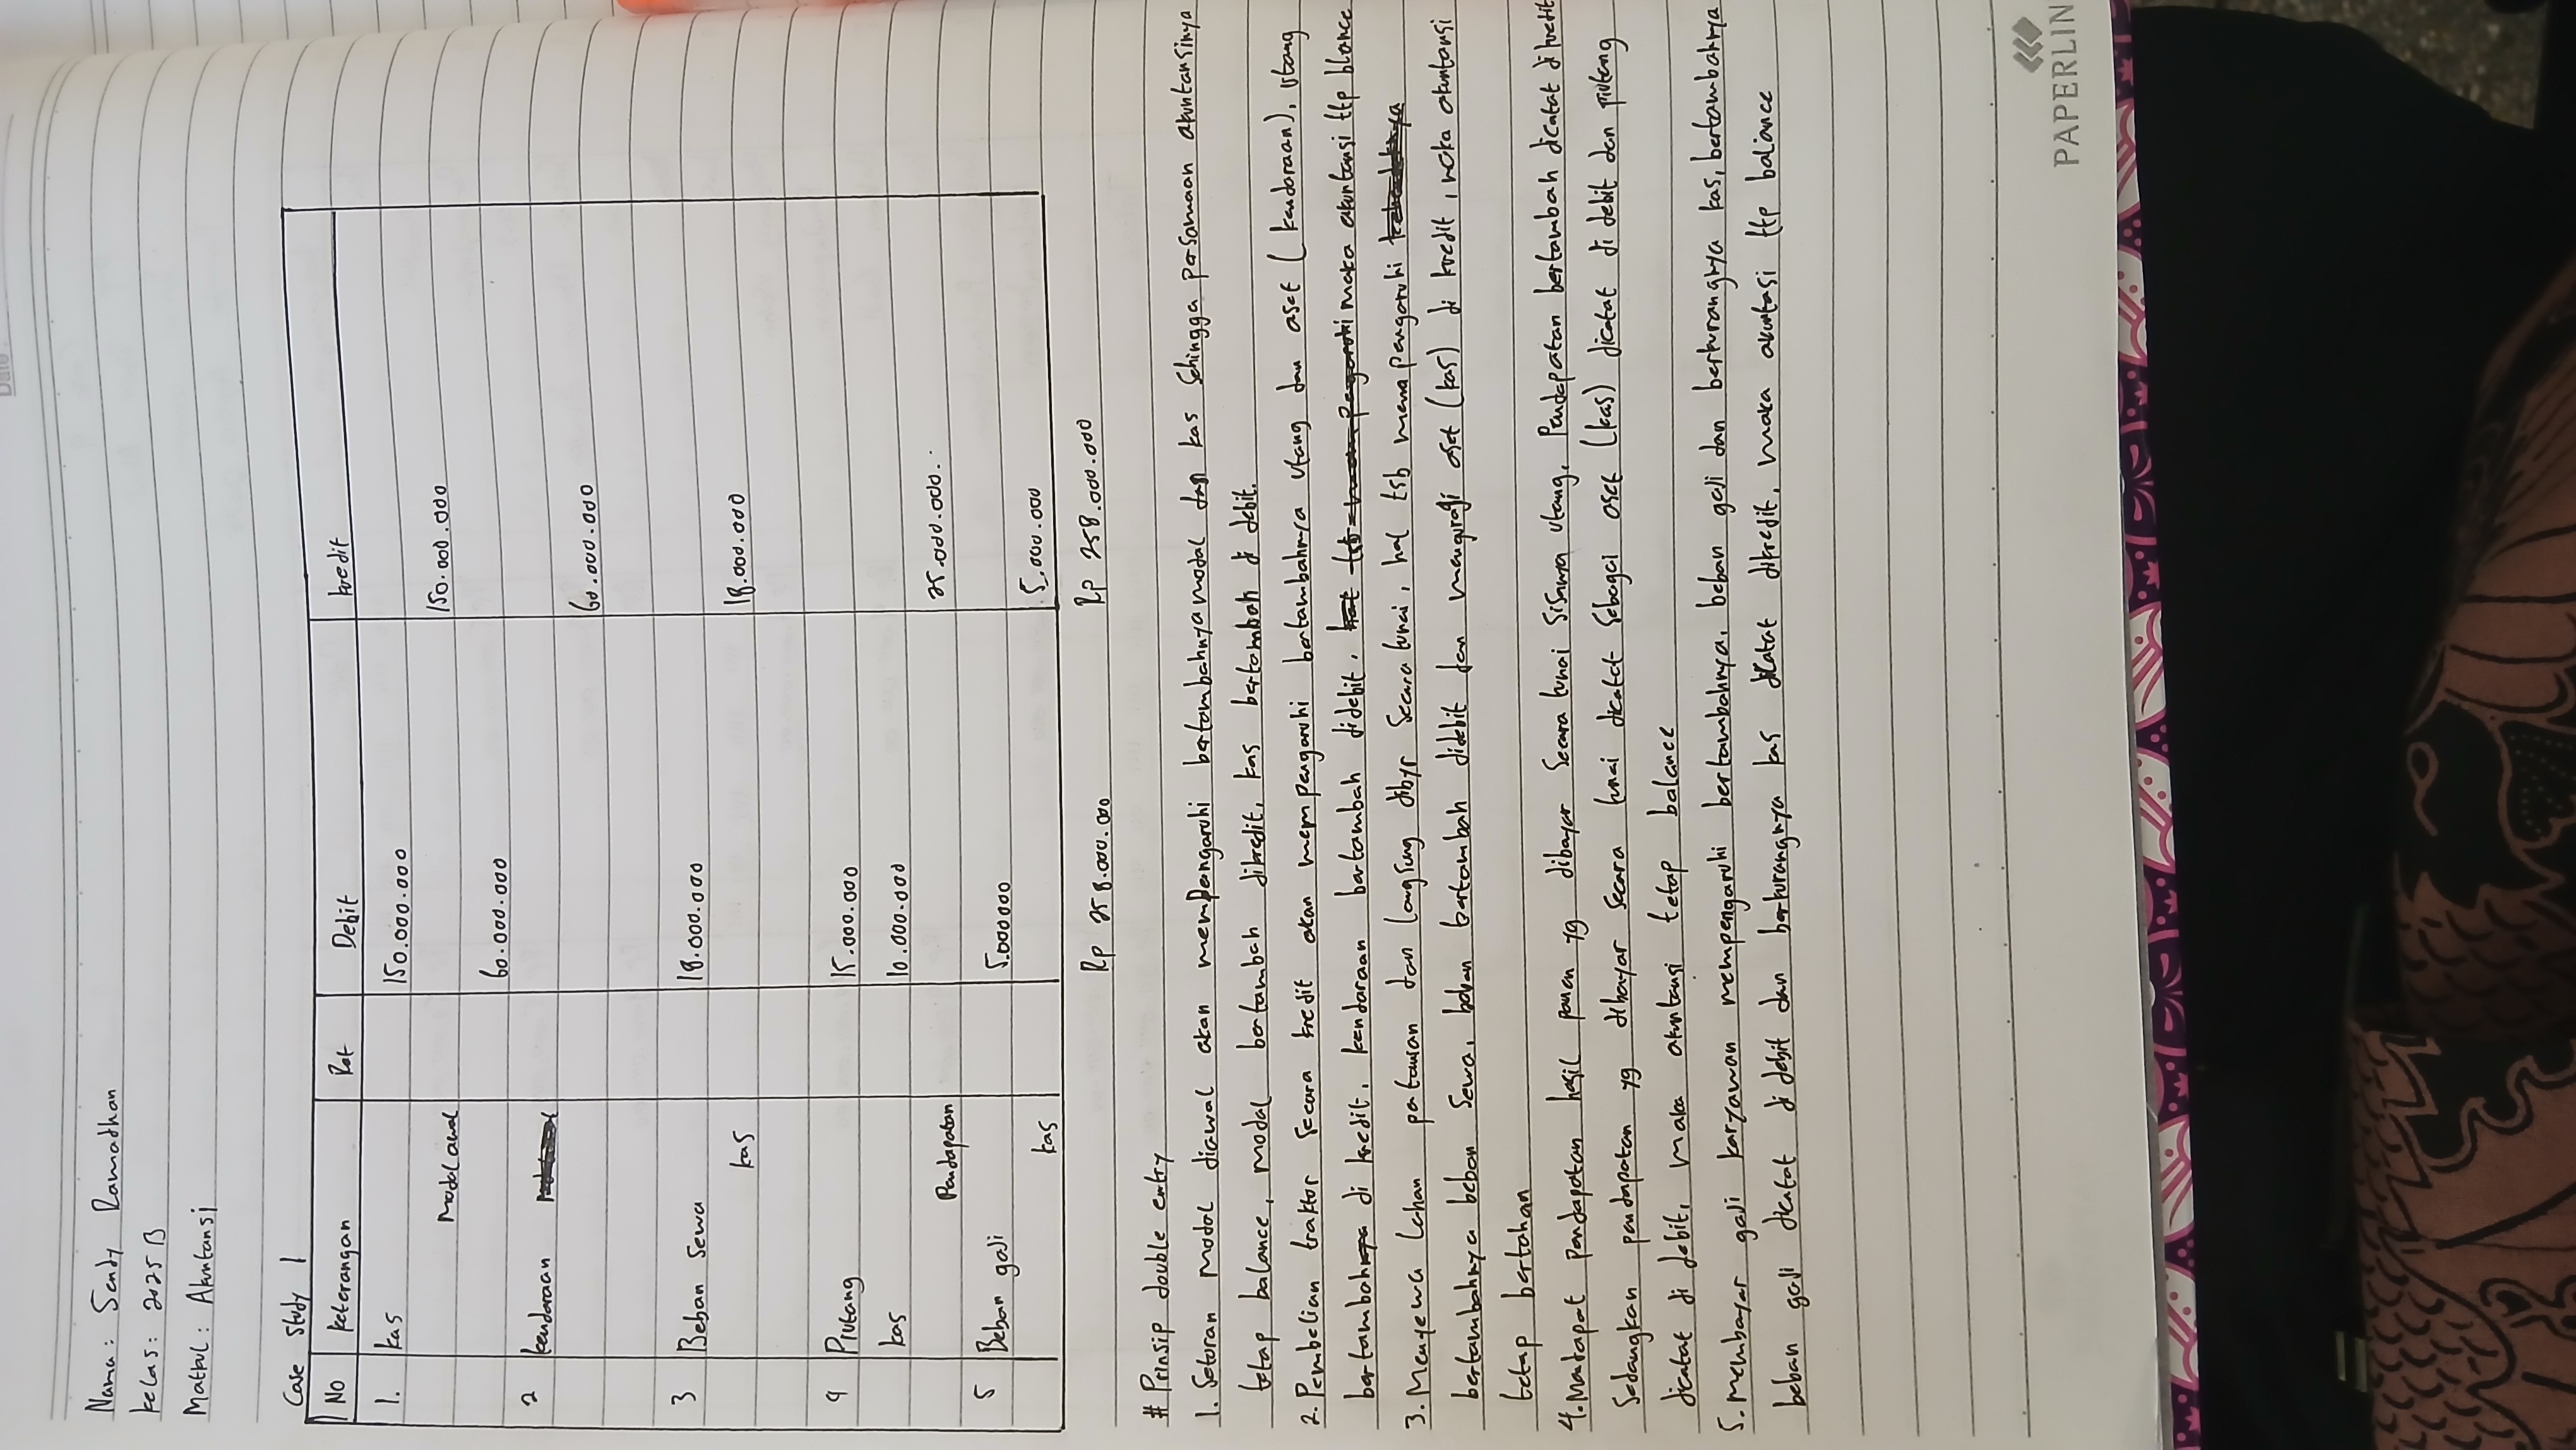 Date :
Nama : Sendy Ramadhan
kelas : 2025 B
Matkul : Akuntansi
Case Study 1
No keterangan Ref Debit kredit
1. kas 150.000.000
Modal awal 150.000.000
60.000.000
2 kendaraan
60.000.000
3 Beban Sewa 18.000.000
kas 18.000.000
4 Piutang 15.000.000
kas 10.000.000
Pendapatan 25.000.000
5 Beban gaji 5.000000
kas 5.000.000
Rp 258.000.000 Rp 258.000.000
# Prinsip double entry
1. Setoran modal diawal akan mempengaruhi bertambahnya modal dan kas sehingga persamaan akuntansinya
tetap balance, modal bertambah dikredit, kas bertambah di debit.
2. Pembelian traktor secara kredit akan mempengaruhi bertambahnya utang dan aset (kendaraan), utang
bertambah di kredit, kendaraan bertambah didebit, maka akuntansi ttp blance
3. Menyewa lahan pertanian dan langsung dibyr secara tunai, hal tsb mempengaruhi
bertambahnya beban sewa, beban bertambah didebit dan mengurangi aset (kas) di kredit, maka akuntansi
tetap bertahan
4. Mendapat pendapatan hasil panen yg dibayar secara tunai sisanya utang, Pendapatan bertambah dicatat di kredit
Sedangkan pendapatan yg dibayar secara tunai dicatat sebagai aset (kas) dicatat di debit dan piutang
dicatat di debit, maka akuntansi tetap balance
5. membayar gaji karyawan mempengaruhi bertambahnya, beban gaji dan berkurangnya kas, bertambahnya
beban gaji dicatat di debit dan berkurangnya kas dicatat dikredit, maka akuntasi ttp baliance
PAPERLIN